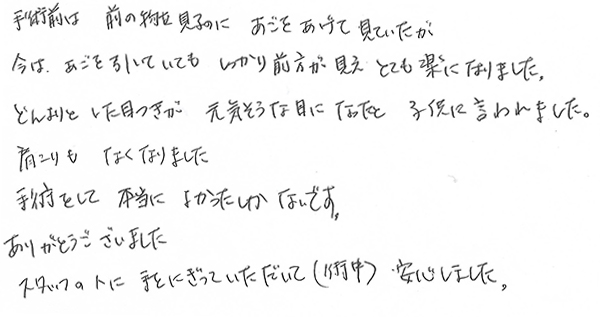 手術前は 前の物を見るのに あごをあげて見ていたが
今は、あごを引いていても しっかり前方が見え とても楽になりました。
どんよりとした目つきが 元気そうな目になったと 子供に言われました。
肩こりも なくなりました
手術をして 本当に よかったしか ないです。
ありがとうございました
スタッフの人に 手をにぎっていただいて(術中) 安心しました。